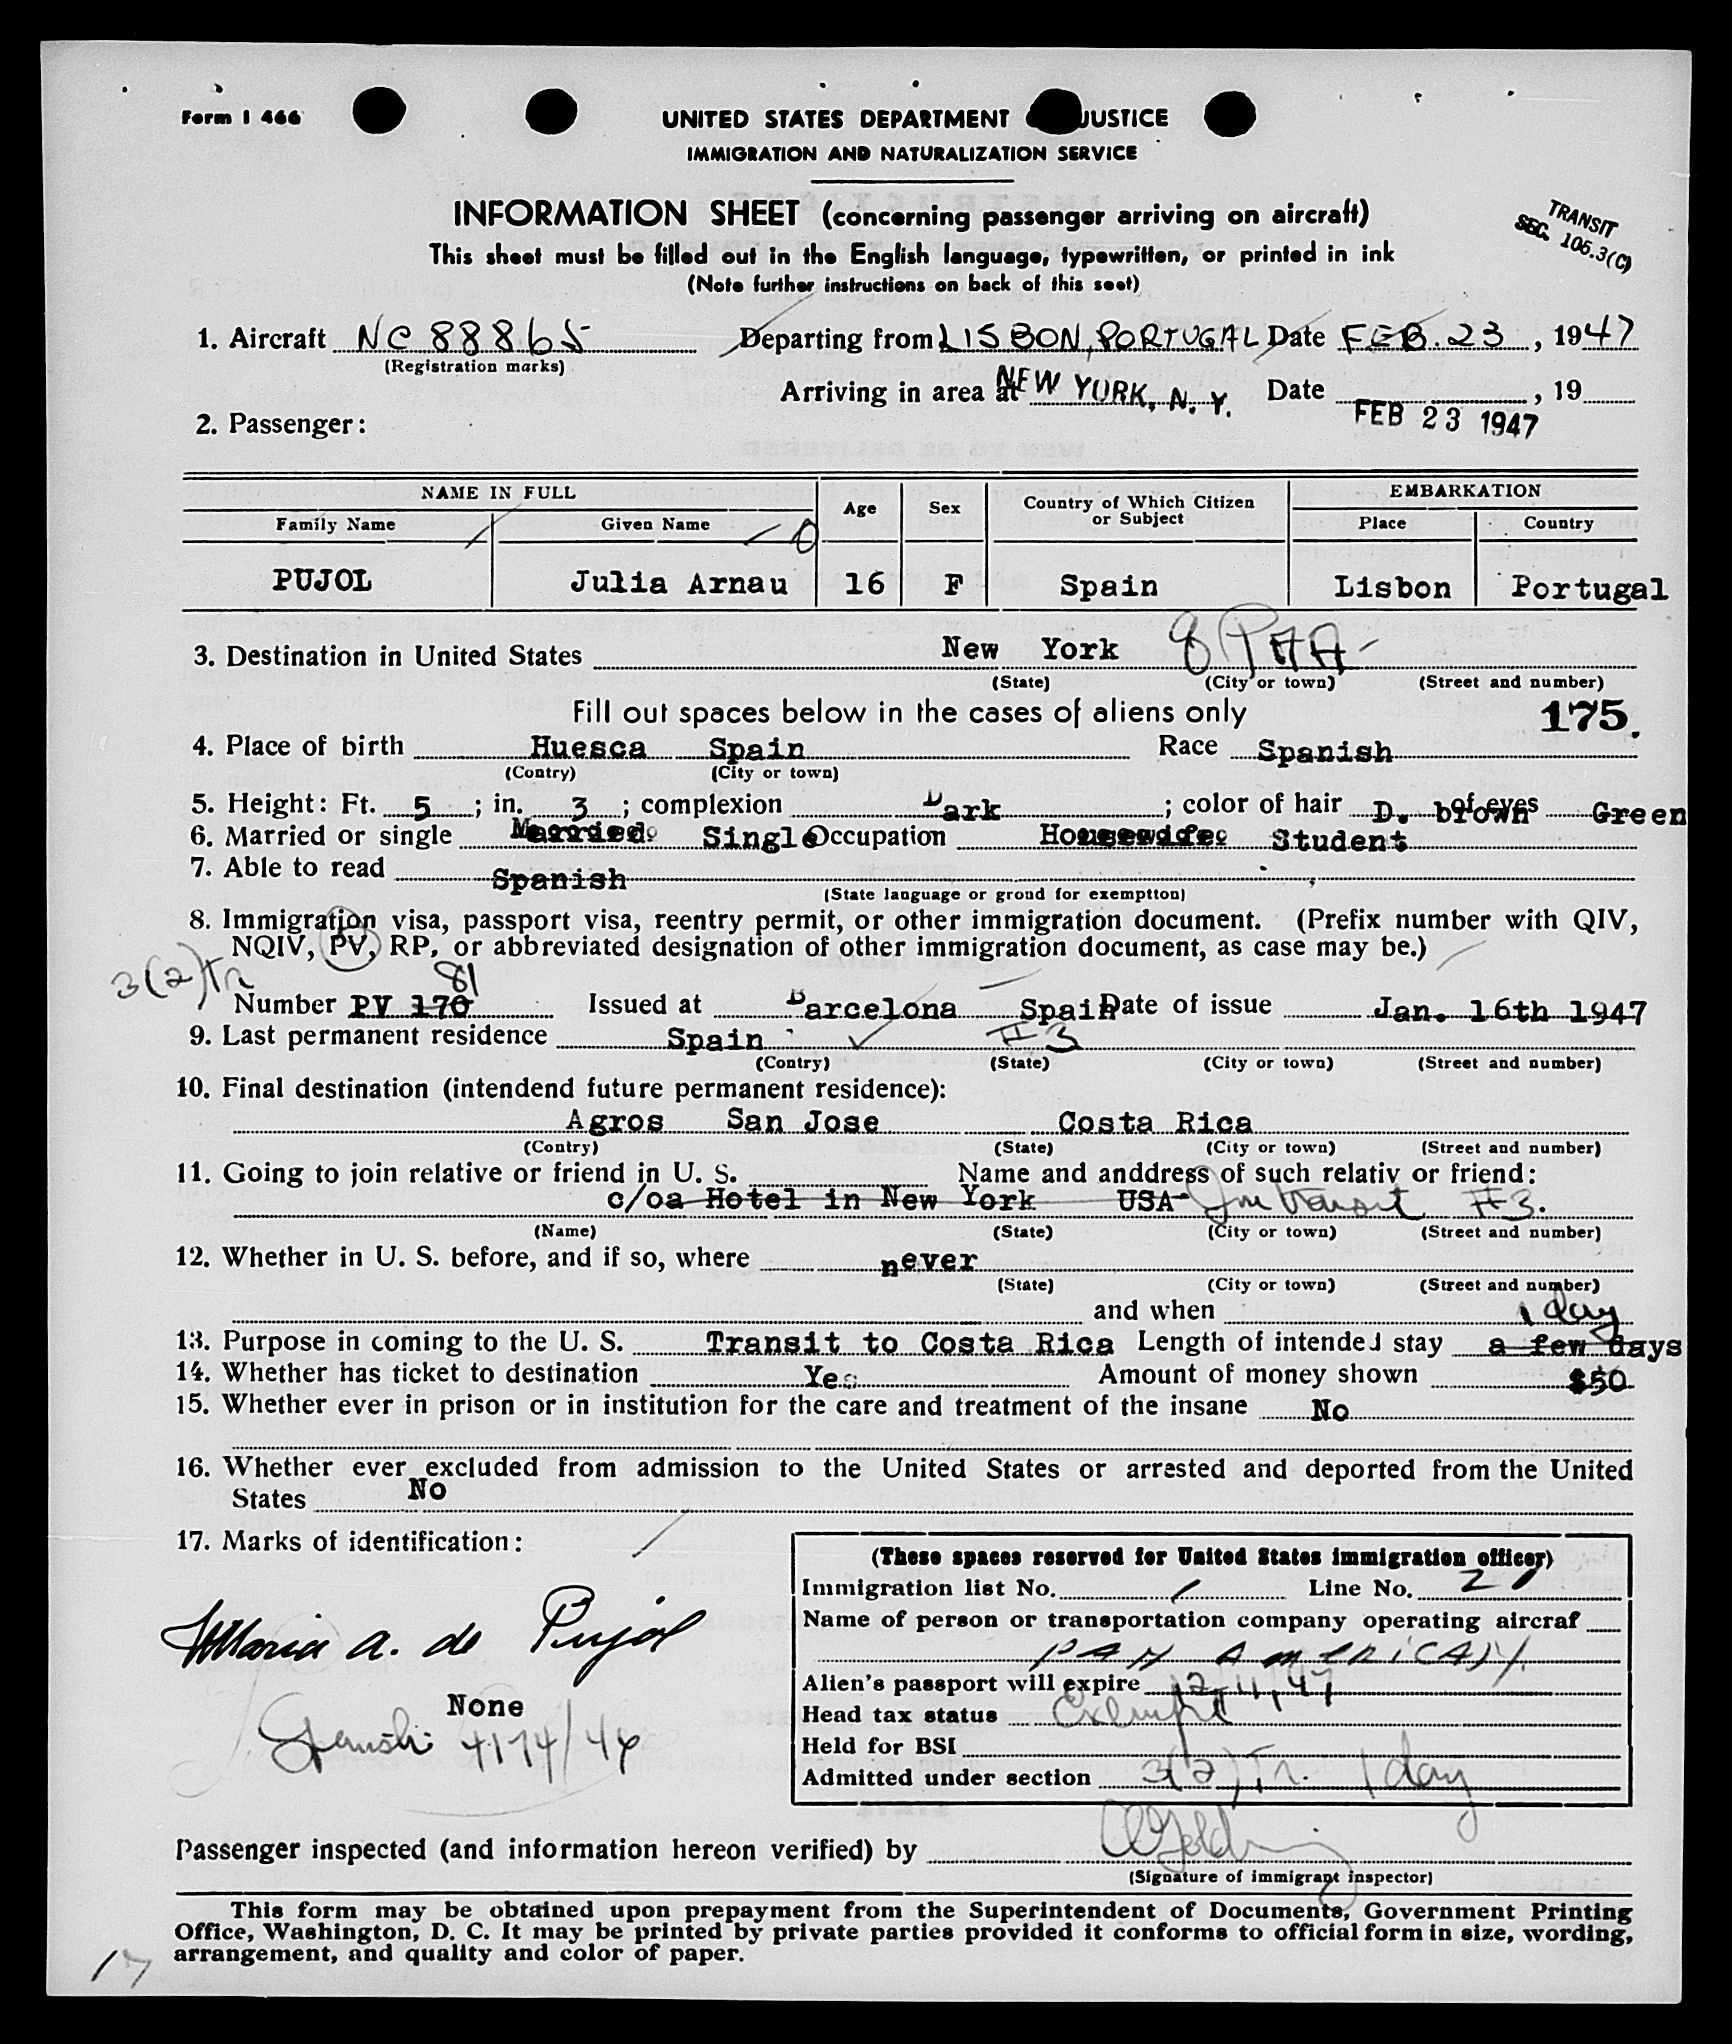 Form I 466
UNITED STATES DEPARTMENT JUSTICE
IMMIGRATION AND NATURALIZATION SERVICE
INFORMATION SHEET (concerning passenger arriving on aircraft)
TRANSIT
SEC. 105.3(C)
This sheet must be filled out in the English language, typewritten, or printed in ink
(Note further instructions on back of this seet)
1. Aircraft NC 88865 Departing from LISBON, PORTUGAL Date FEB. 23, 1947
(Registration marks)
Arriving in area at NEW YORK, N. Y. Date , 19
FEB 23 1947
2. Passenger:
NAME IN FULL Age Sex Country of Which Citizen or Subject EMBARKATION
Family Name Given Name Place Country
PUJOL Julia Arnau 16 F Spain Lisbon Portugal
3. Destination in United States New York
(State) (City or town) (Street and number)
Fill out spaces below in the cases of aliens only 175.
4. Place of birth Huesca Spain Race Spanish
(Contry) (City or town)
5. Height: Ft. 5 ; in. 3 ; complexion Dark ; color of hair D. brown of eyes Green
6. Married or single Married. Single Occupation Housewife. Student
7. Able to read Spanish
(State language or groud for exemptton)
8. Immigration visa, passport visa, reentry permit, or other immigration document. (Prefix number with QIV,
NQIV, PV, RP, or abbreviated designation of other immigration document, as case may be.)
3(2)Tr 81
Number PV 170 Issued at Barcelona Spain Date of issue Jan. 16th 1947
9. Last permanent residence Spain #3
(Contry) (State) (City or town) (Street and number)
10. Final destination (intendend future permanent residence):
Agros San Jose Costa Rica
(Contry) (State) (City or town) (Street and number)
11. Going to join relative or friend in U. S. Name and anddress of such relativ or friend:
c/oa Hotel in New York USA In transit #3.
(Name) (State) (City or town) (Street and number)
12. Whether in U. S. before, and if so, where never
(State) (City or town) (Street and number)
and when 1 day
13. Purpose in coming to the U. S. Transit to Costa Rica Length of intended stay a few days
14. Whether has ticket to destination Yes Amount of money shown $50
15. Whether ever in prison or in institution for the care and treatment of the insane No
16. Whether ever excluded from admission to the United States or arrested and deported from the United
States No
17. Marks of identification:
(These spaces reserved for United States immigration officer)
Immigration list No. 1 Line No. 21
Name of person or transportation company operating aircraf
PAN AMERICAN.
Maria A. de Pujol
Alien's passport will expire 12,11,47
None
Head tax status Exempt
Spanish 4174/46
Held for BSI
Admitted under section 3(2)Tr. 1 day
Passenger inspected (and information hereon verified) by
(Signature of immigrant inspector)
This form may be obtained upon prepayment from the Superintendent of Documents, Government Printing
Office, Washington, D. C. It may be printed by private parties provided it conforms to official form in size, wording,
arrangement, and quality and color of paper.
17